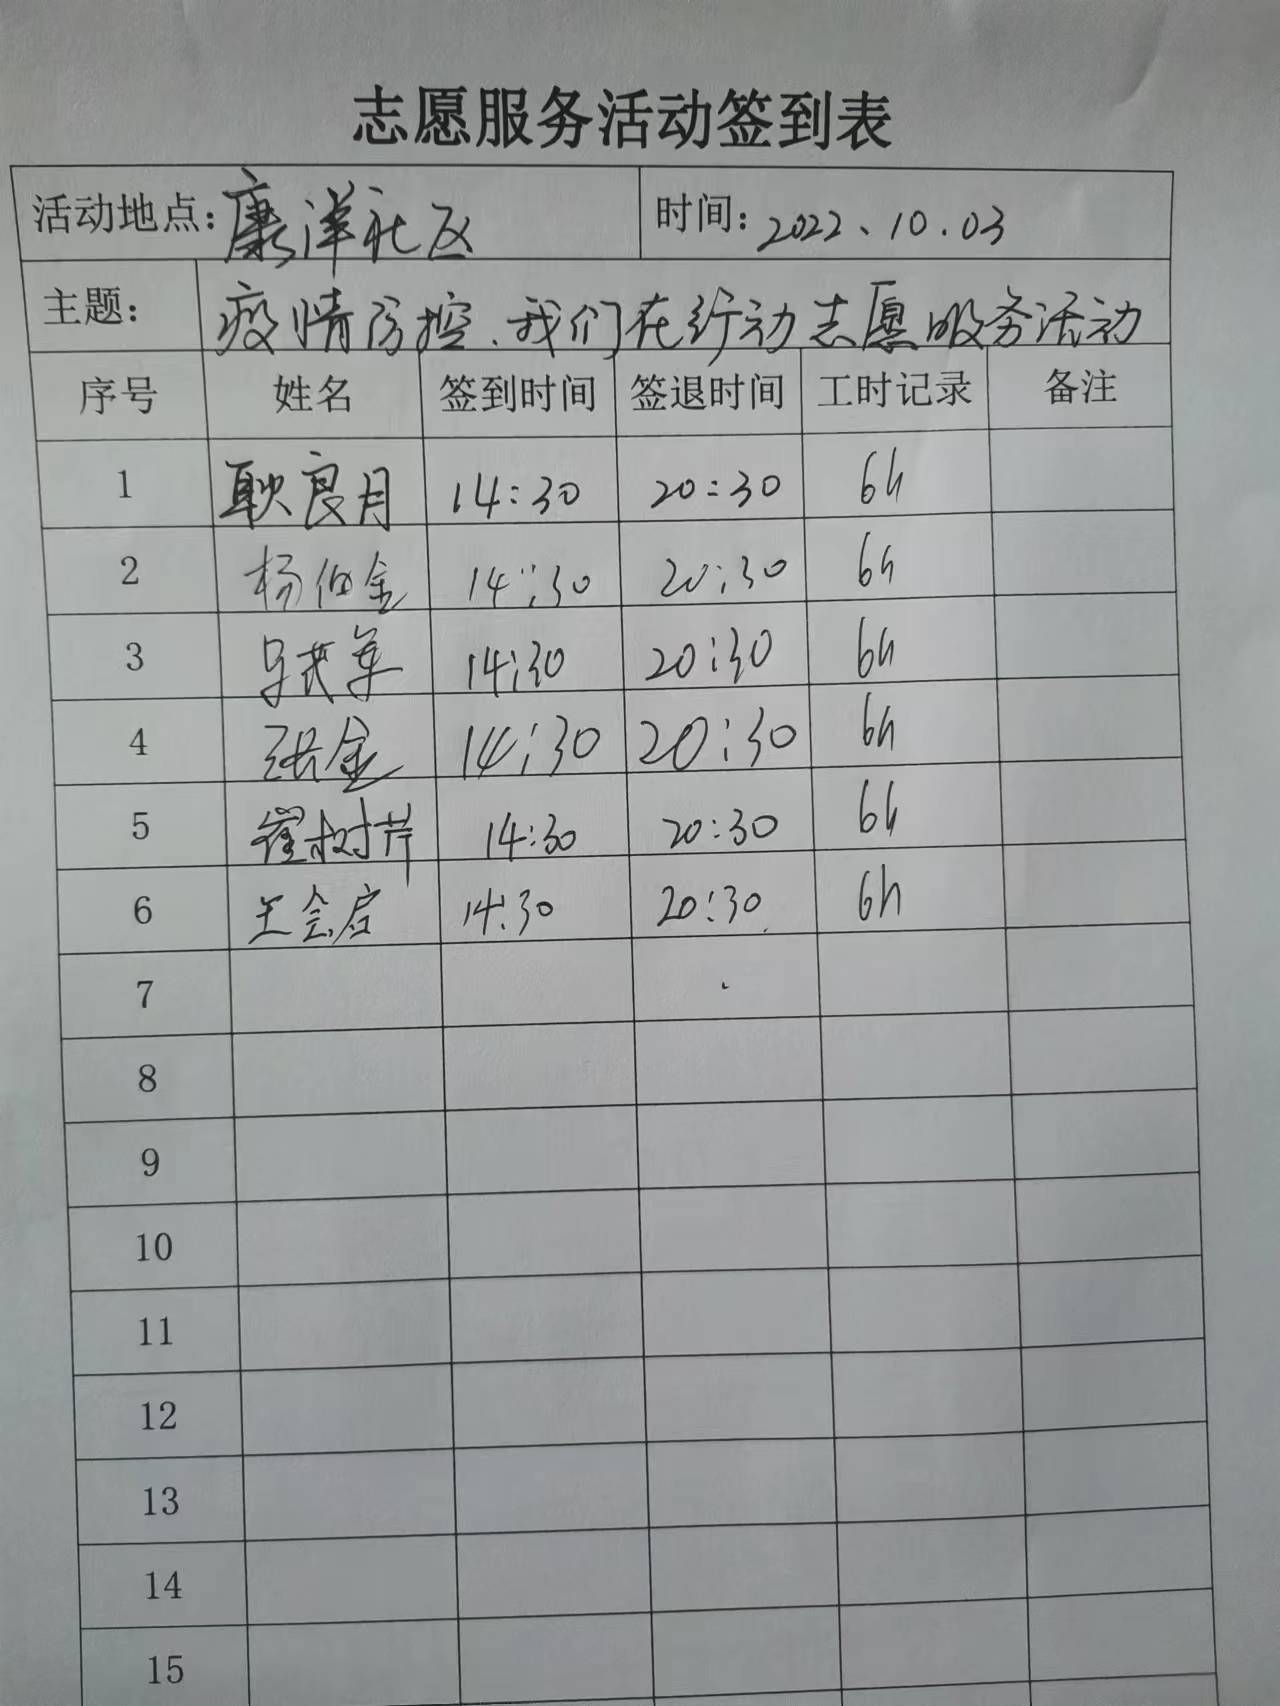 志愿服务活动签到表
活动地点：康洋社区 时间：2022、10.03
主题： 疫情防控、我们在行动志愿服务活动
序号 姓名 签到时间 签退时间 工时记录 备注
1 耿良月 14:30 20:30 6h
2 杨伯金 14:30 20:30 6h
3 14:30 20:30 6h
4 张金 14:30 20:30 6h
5 崔树芹 14:30 20:30 6h
6 王会启 14:30 20:30 6h
7
8
9
10
11
12
13
14
15